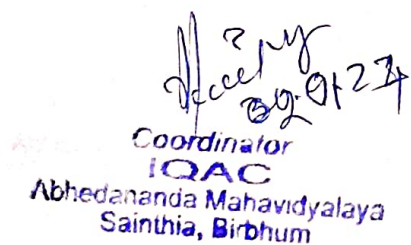 Coordinator
IQAC
Abhedananda Mahavidyalaya
Sainthia, Birbhum